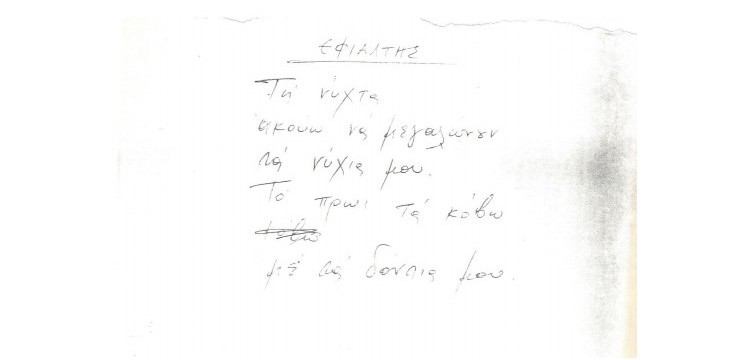 ΕΦΙΑΛΤΗΣ
Τή νύχτα
ἀκούω νά μεγαλώνουν
τά νύχια μου.
Τό πρωί τά κόβω
μέ τά δόντια μου.